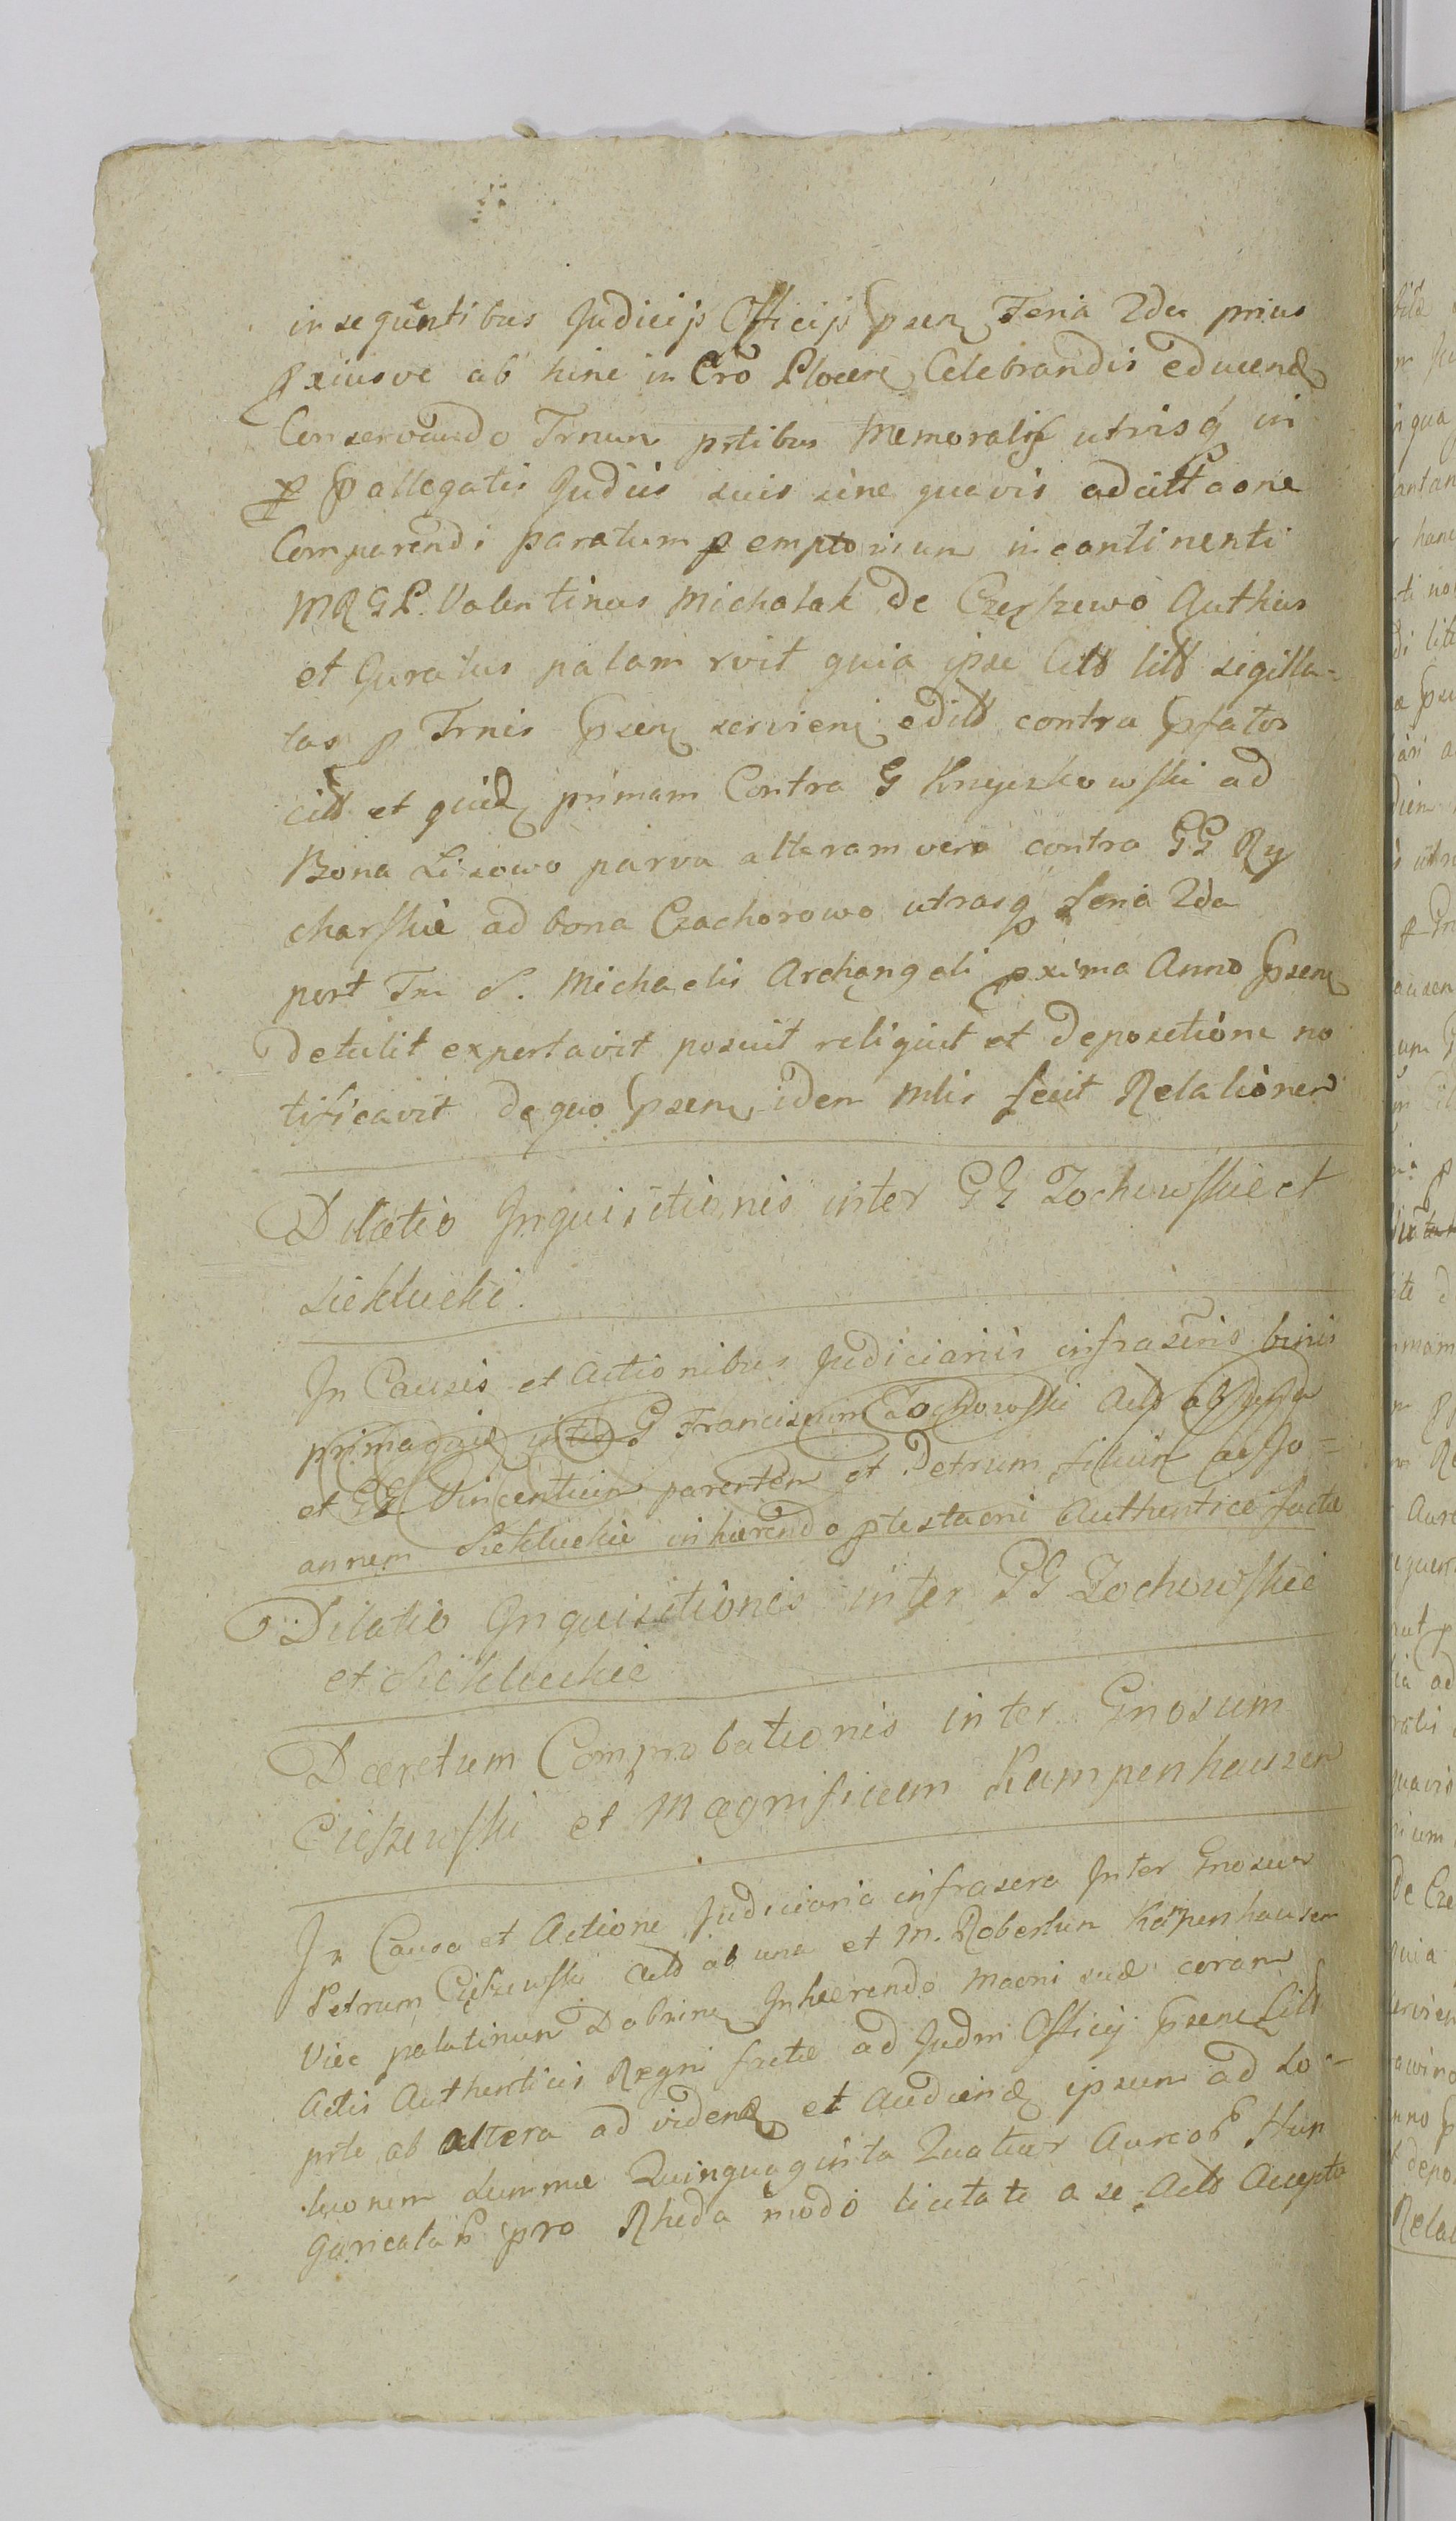 insequentibus Judicijs Officij psen Feria 2da prius
pxiusve ab hinc in Cro Plocen Celebrandis educend
Conservando Trnum ptibus Memoralis utrisq in
pallegatis Judiis suis sine quavis adcittaone
Comparendi paratum pemptorium incontinenti
MRGP. Valentinus Michalak de Czerszewo Authus
et Juratus palam rvit quia ipse Citt litt sigilla-
tas p Trnis psen servien editt contra pfatos
citt et quid primam Contra G Knyszkowski ad
Bona Lisowo parva alteram vero contra GG Ry
charskie ad bona Czachorowo utrasq feria 2da
post Fm S. Michaelis Archangeli pxima Anno psen
detulit exportavit posuit reliquit et depositione no
tificavit de quo psen idem Mlis fecit Relationem
Dilatio Inquisitionis inter GG Zochowskie et
Siekluckie.
In Causis et Actionibus Judiciariis infrascris binis
prima quid inter G Franciscum Zochowski Actt ab una
et GG Vincentium parentem et Petrum filium ac Jo=
annem Siekluckie inhaerendo ptestaoni Authentice factae
Dilatio Inquisitionis inter GG Zochowskie
et Siekluckie
Decretum Comprobationis inter Gnosum
Cieszewski et Magnificum Kampenhauzen
In Causa et Actione Judiciaria infrascra Inter Gnosum
Petrum Cieszewski Actt ab una et M. Robertum Kampenhausen
Vice palatinum Dobrinen Inhaerendo Maoni suae coram
Actis Authenticis Regni factae ad Judm Officij psens Citt
prte ab altera ad vidend et audiend ipsum ad So-
luonem Summae Quinquaginta Quatuor Aureor Hun
garicalar pro Rheda modo licitate a se Actt Accepta